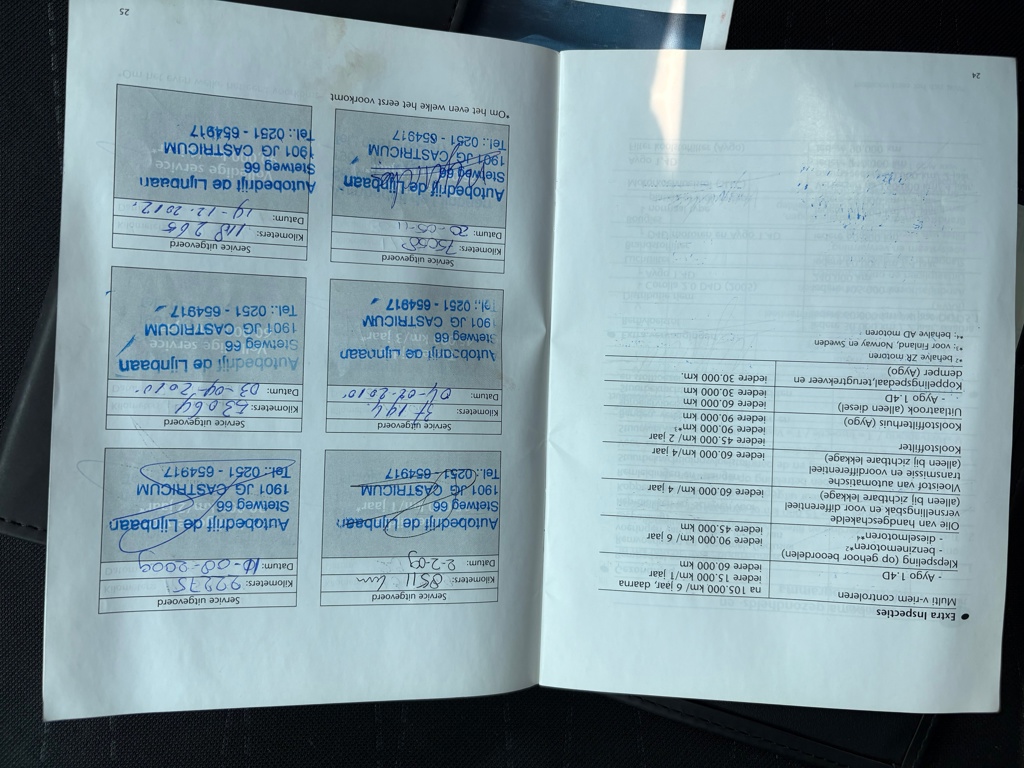 • Extra Inspecties
Multi v-riem controleren
na 105.000 km/ 6 jaar, daarna
iedere 15.000 km/1 jaar
- Aygo 1.4D
iedere 60.000 km
Klepspeling (op gehoor beoordelen)
- benzinemotoren*²
iedere 90.000 km/ 6 jaar
- dieselmotoren*⁴
iedere 45.000 km
Olie van handgeschakelde
versnellingsbak en voor differentieel
(alleen bij zichtbare lekkage)
iedere 60.000 km/ 4 jaar
Vloeistof van automatische
transmissie en voordifferentieel
(alleen bij zichtbare lekkage)
iedere 60.000 km/4 jaar
Koolstoffilter
iedere 45.000 km/ 2 jaar
iedere 90.000 km*¹
Koolstoffilterhuis (Aygo)
iedere 90.000 km
Uitlaatraat (alleen diesel)
iedere 60.000 km
- Aygo 1.4D
iedere 30.000 km
Koppelingspedaal,terugtrekveer en
demper (Aygo)
iedere 30.000 km.
*² behalve ZR motoren
*³: voor Finland, Norway en Sweden
*⁴: behalve AD motoren
24
Service uitgevoerd
Kilometers: 8511 km
Datum: 2-2-09
Autobedrijf de Lijnbaan
Stetweg 66
1901 JG CASTRICUM
Tel.: 0251 - 654917
Service uitgevoerd
Kilometers: 22275
Datum: 10-08-2009
Autobedrijf de Lijnbaan
Stetweg 66
1901 JG CASTRICUM
Tel.: 0251 - 654917
Service uitgevoerd
Kilometers: 37194
Datum: 04-02-2010
Autobedrijf de Lijnbaan
Stetweg 66
1901 JG CASTRICUM
Tel.: 0251 - 654917
Service uitgevoerd
Kilometers: 53064
Datum: 03-09-2010
Autobedrijf de Lijnbaan
Stetweg 66
1901 JG CASTRICUM
Tel.: 0251 - 654917
Service uitgevoerd
Kilometers: 75058
Datum: 20-05-11
Autobedrijf de Lijnbaan
Stetweg 66
1901 JG CASTRICUM
Tel.: 0251 - 654917
Service uitgevoerd
Kilometers: 148265
Datum: 19-12-2012
Autobedrijf de Lijnbaan
Stetweg 66
1901 JG CASTRICUM
Tel.: 0251 - 654917
*Om het even welke het eerst voorkomt
25